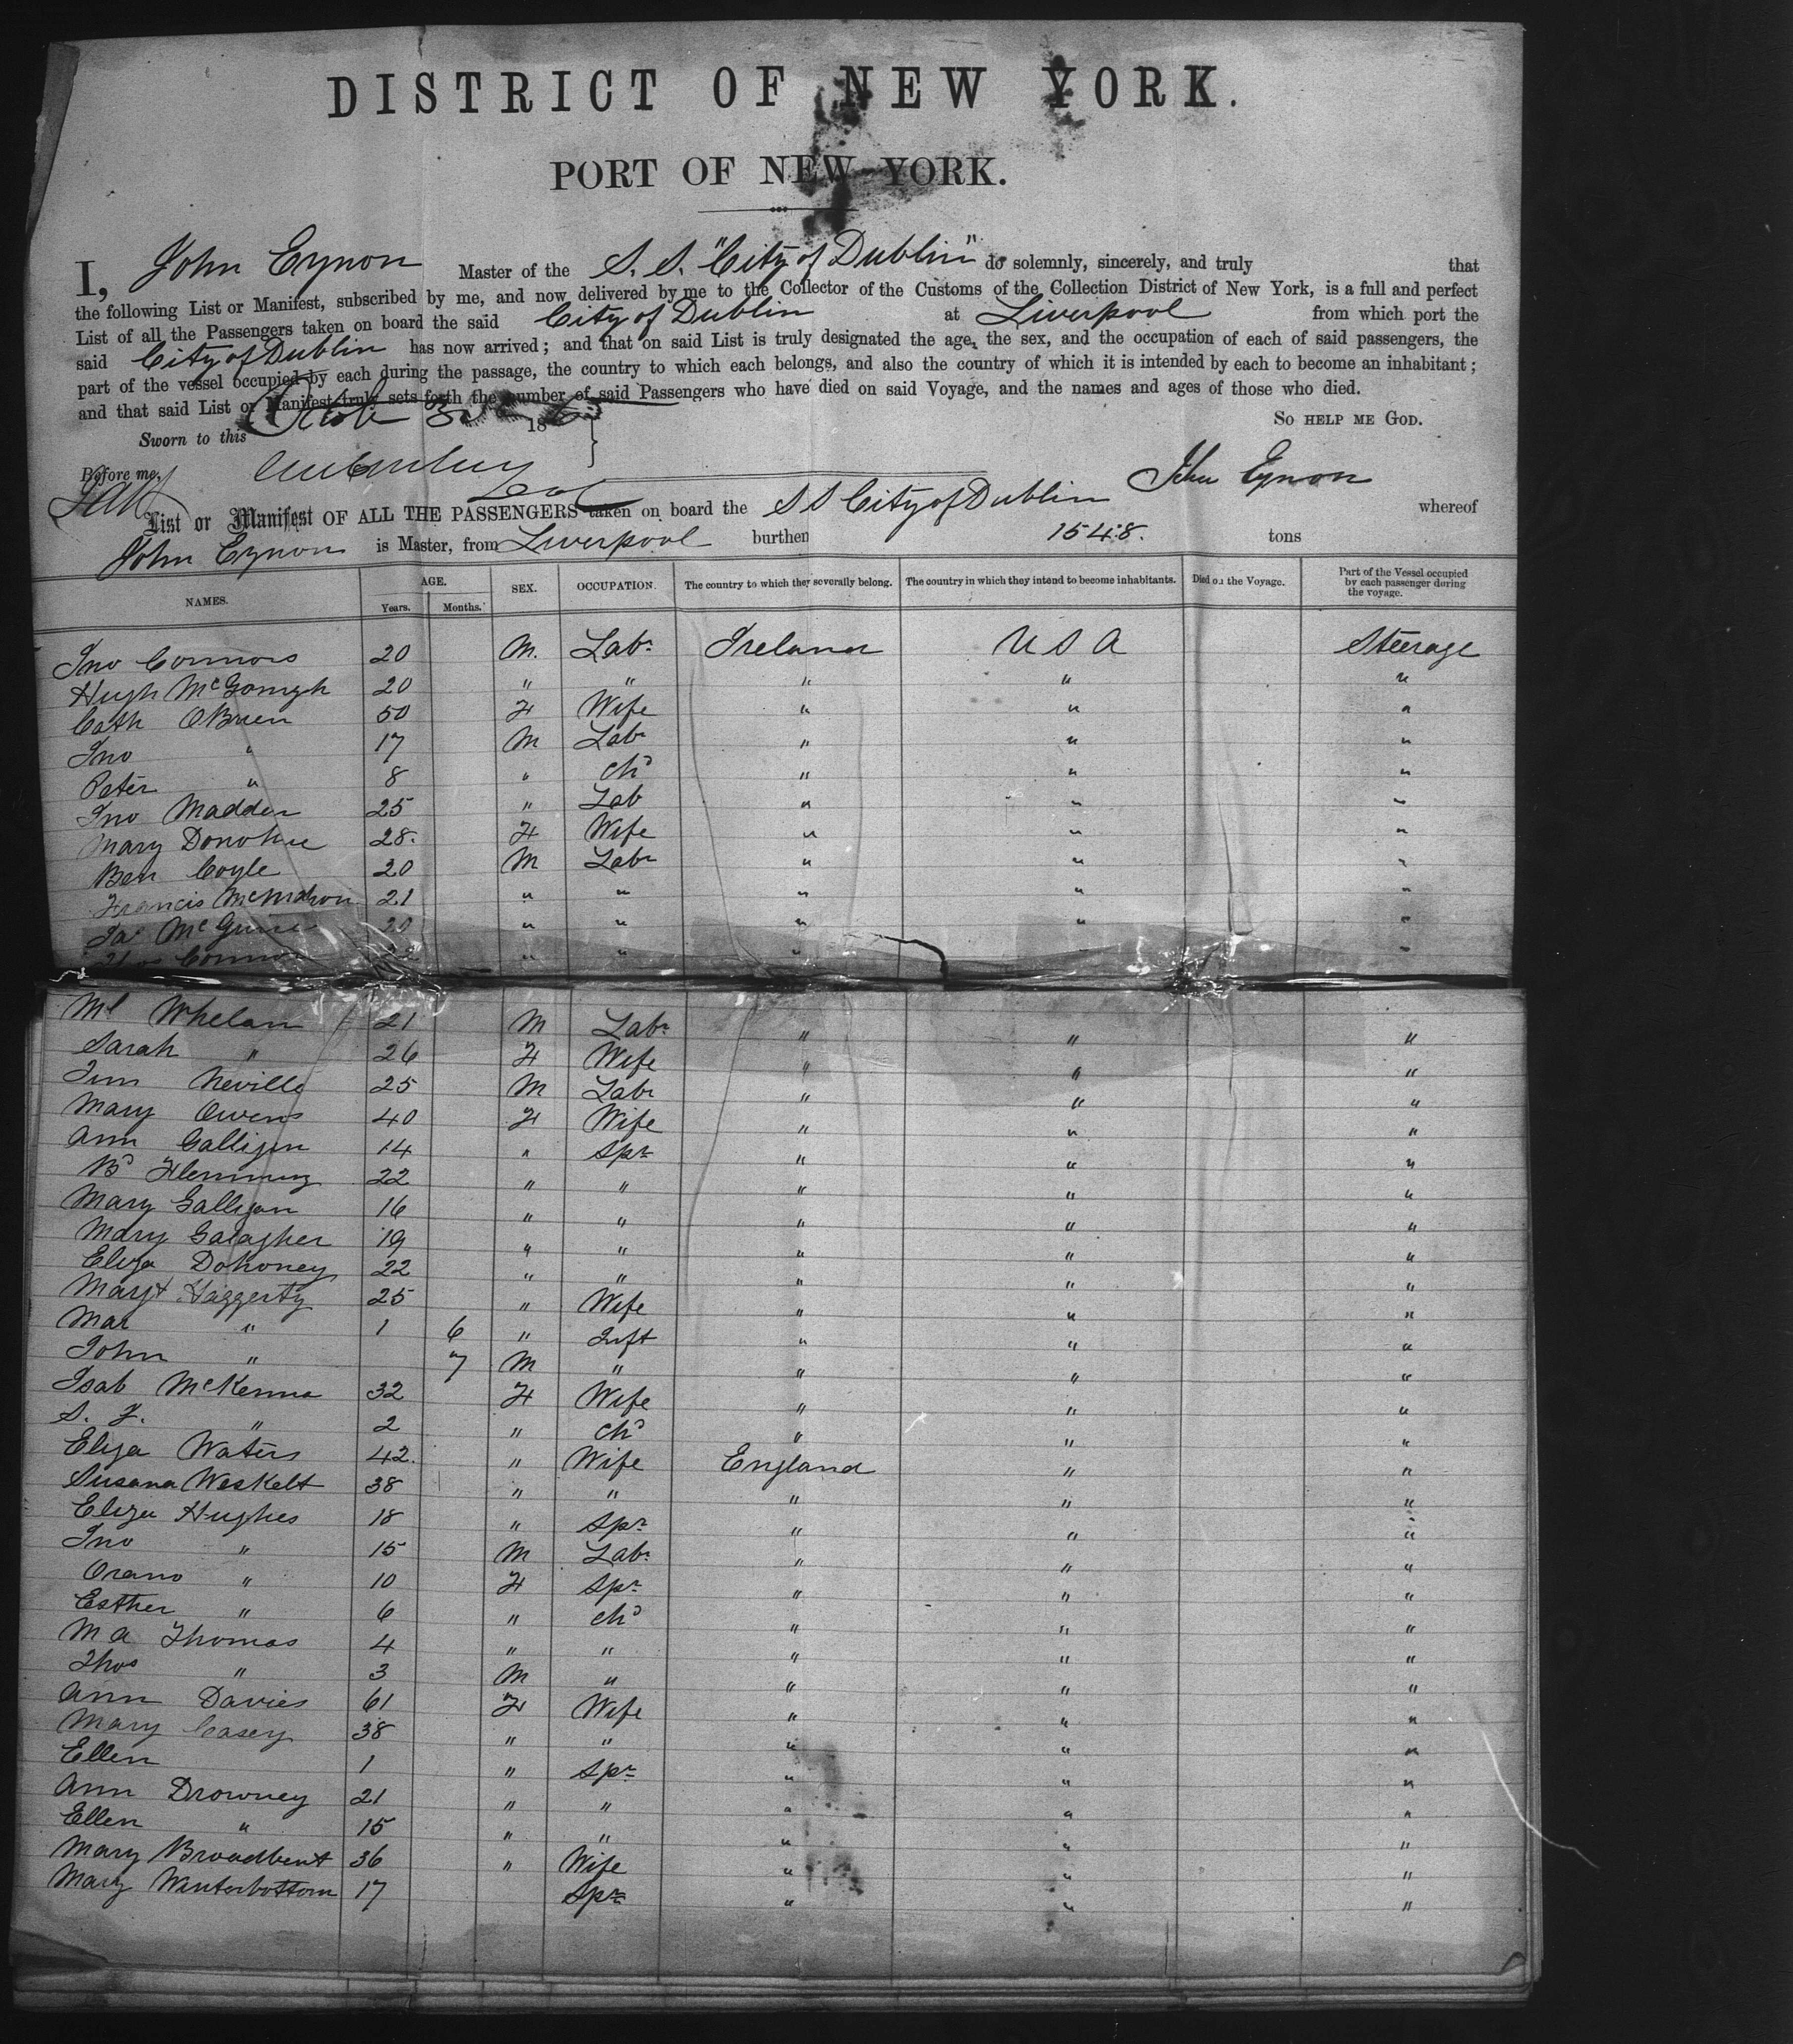 DISTRICT OF NEW YORK.
PORT OF NEW YORK.
I, John Eynon Master of the S. S. "City of Dublin" do solemnly, sincerely, and truly that
the following List or Manifest, subscribed by me, and now delivered by me to the Collector of the Customs of the Collection District of New York, is a full and perfect
List of all the Passengers taken on board the said City of Dublin at Liverpool from which port the
said City of Dublin has now arrived; and that on said List is truly designated the age, the sex, and the occupation of each of said passengers, the
part of the vessel occupied by each during the passage, the country to which each belongs, and also the country of which it is intended by each to become an inhabitant;
and that said List or Manifest truly sets forth the number of said Passengers who have died on said Voyage, and the names and ages of those who died.
Sworn to this 18 SO HELP ME GOD.
Before me, John Eynon
List or Manifest OF ALL THE PASSENGERS taken on board the S S City of Dublin whereof
John Eynon is Master, from Liverpool burthen 1548. tons
NAMES. AGE. Years. Months. SEX. OCCUPATION. The country to which they severally belong. The country in which they intend to become inhabitants. Died on the Voyage. Part of the Vessel occupied by each passenger during the voyage.
Jno Connors 20 M. Labr Ireland U S A Steerage
Hugh 20 " " " " "
Cath OBrien 50 F Wife " " "
Jno " 17 M Labr " " "
Peter " 8 " Chd " " "
Jno Madden 25 " Lab " " "
Mary Donohue 28. F Wife " " "
Ben Coyle 20 M Labr " " "
Francis McMahon 21 " " " " "
Jas McGuire 20 " " " " "
Thos Connor " " " "
Ml Whelan 21 M Labr " " "
Sarah " 26 F Wife " " "
Jim Neville 25 M Labr " " "
Mary Owens 40 F Wife " " "
Ann Galligan 14 " Spr " " "
Bd Flemming 22 " " " " "
Mary Galligan 16 " " " " "
Mary Galagher 19 " " " " "
Eliza Dohoney 22 " " " " "
Margt Haggerty 25 " Wife " " "
Mar " 1 6 " Inft " " "
John " 7 M " " " "
Isab McKenna 32 F Wife " " "
S. J. " 2 " Chd " " "
Eliza Waters 42. " Wife England " "
Susana Weskelt 38 " " " " "
Eliza Hughes 18 " Spr " " "
Jno " 15 M Labr " " "
Orano " 10 F Spr " " "
Esther " 6 " Chd " " "
M A Thomas 4 " " " " "
Thos " 3 M " " " "
Ann Davies 61 F Wife " " "
Mary Casey 38 " " " " "
Ellen 1 " Spr " " "
Ann Drowney 21 " " " " "
Ellen " 15 " " " " "
Mary Broadbent 36 " Wife " " "
Mary Winterbottom 17 Spr " " "